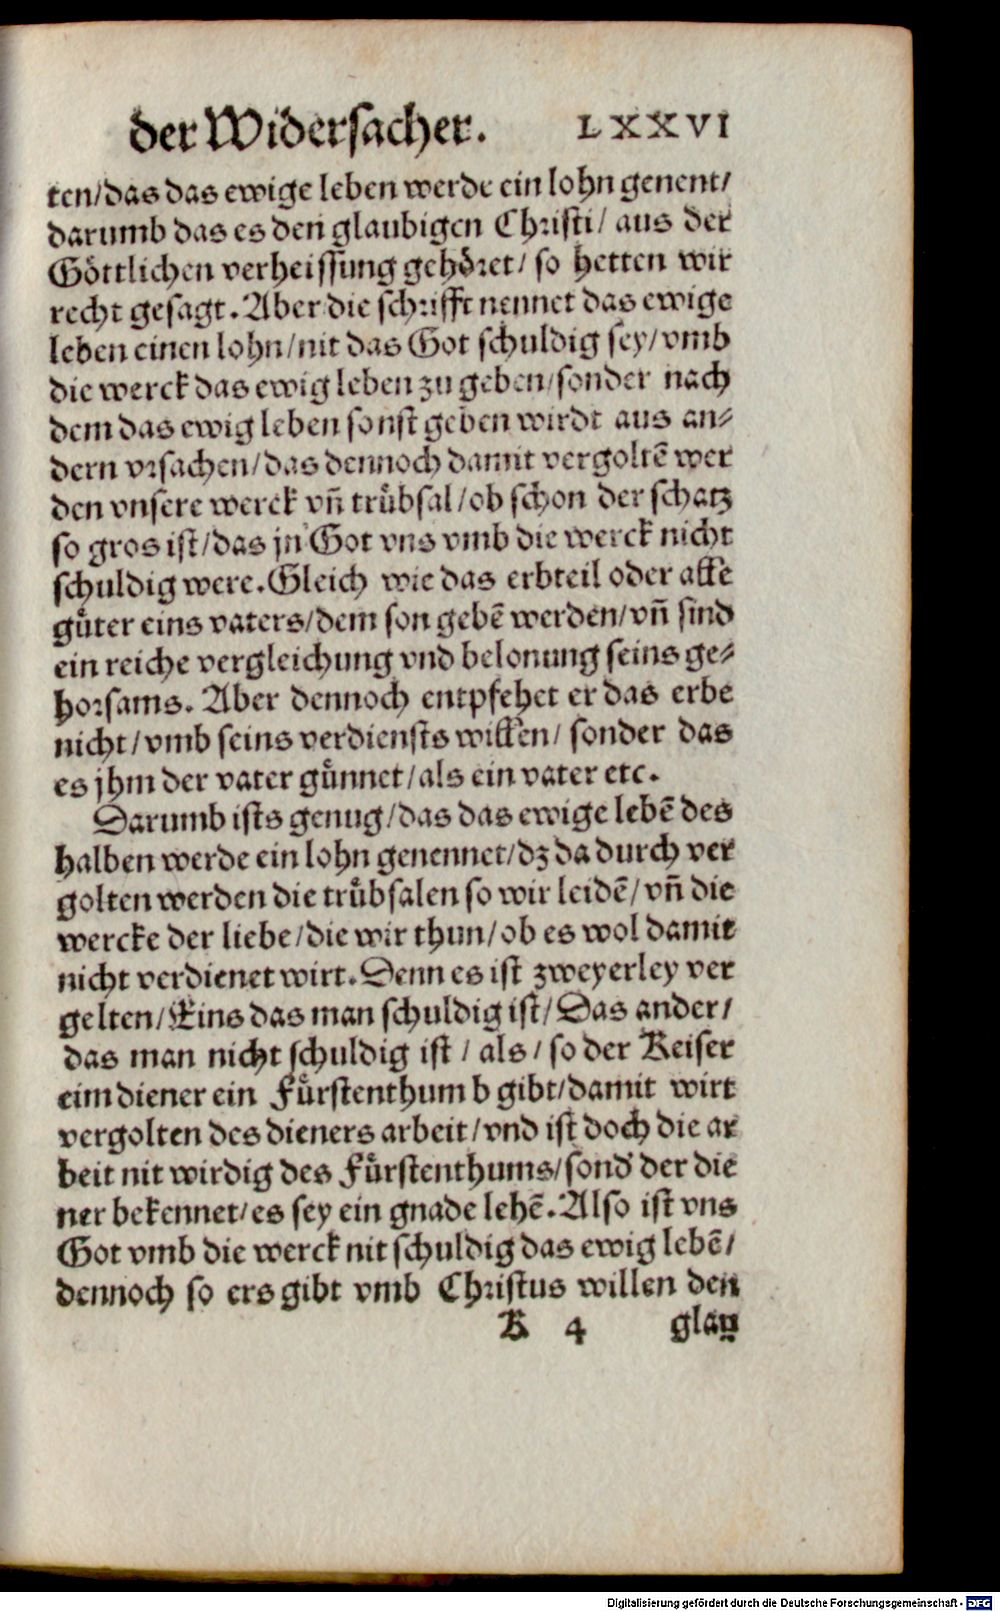 der Widersacher. LXXVI
ten/das das ewige leben werde ein lohn genent/
darumb das es den glaubigen Christi/ aus der
Göttlichen verheissung gehöret/ so hetten wir
recht gesagt. Aber die schrifft nennet das ewige
leben einen lohn/nit das Got schuldig sey/vmb
die werck das ewig leben zu geben/sonder nach
dem das ewig leben sonst geben wirdt aus an⸗
dern vrsachen/das dennoch damit vergoltē wer
den vnsere werck vn̄ trůbsal/ob schon der schatz
so gros ist/das jn Got vns vmb die werck nicht
schuldig were. Gleich wie das erbteil oder alle
gůter eins vaters/dem son gebē werden/vn̄ sind
ein reiche vergleichung vnd belonung seins ge⸗
horsams. Aber dennoch entpfehet er das erbe
nicht/vmb seins verdiensts willen/ sonder das
es jhm der vater gůnnet/als ein vater etc.
Darumb ists genug/das das ewige lebē des
halben werde ein lohn genennet/dz da durch ver
golten werden die trůbsalen so wir leidē/vn̄ die
wercke der liebe/die wir thun/ob es wol damit
nicht verdienet wirt. Denn es ist zweyerley ver
gelten/Eins das man schuldig ist/Das ander/
das man nicht schuldig ist/als/so der Keiser
eim diener ein Fůrstenthumb gibt/damit wirt
vergolten des dieners arbeit/vnd ist doch die ar
beit nit wirdig des Fůrstenthums/sond' der die
ner bekennet/es sey ein gnade lehē. Also ist vns
Got vmb die werck nit schuldig das ewig lebē/
dennoch so ers gibt vmb Christus willen den
K 4 glau
Digitalisierung gefördert durch die Deutsche Forschungsgemeinschaft - DFG